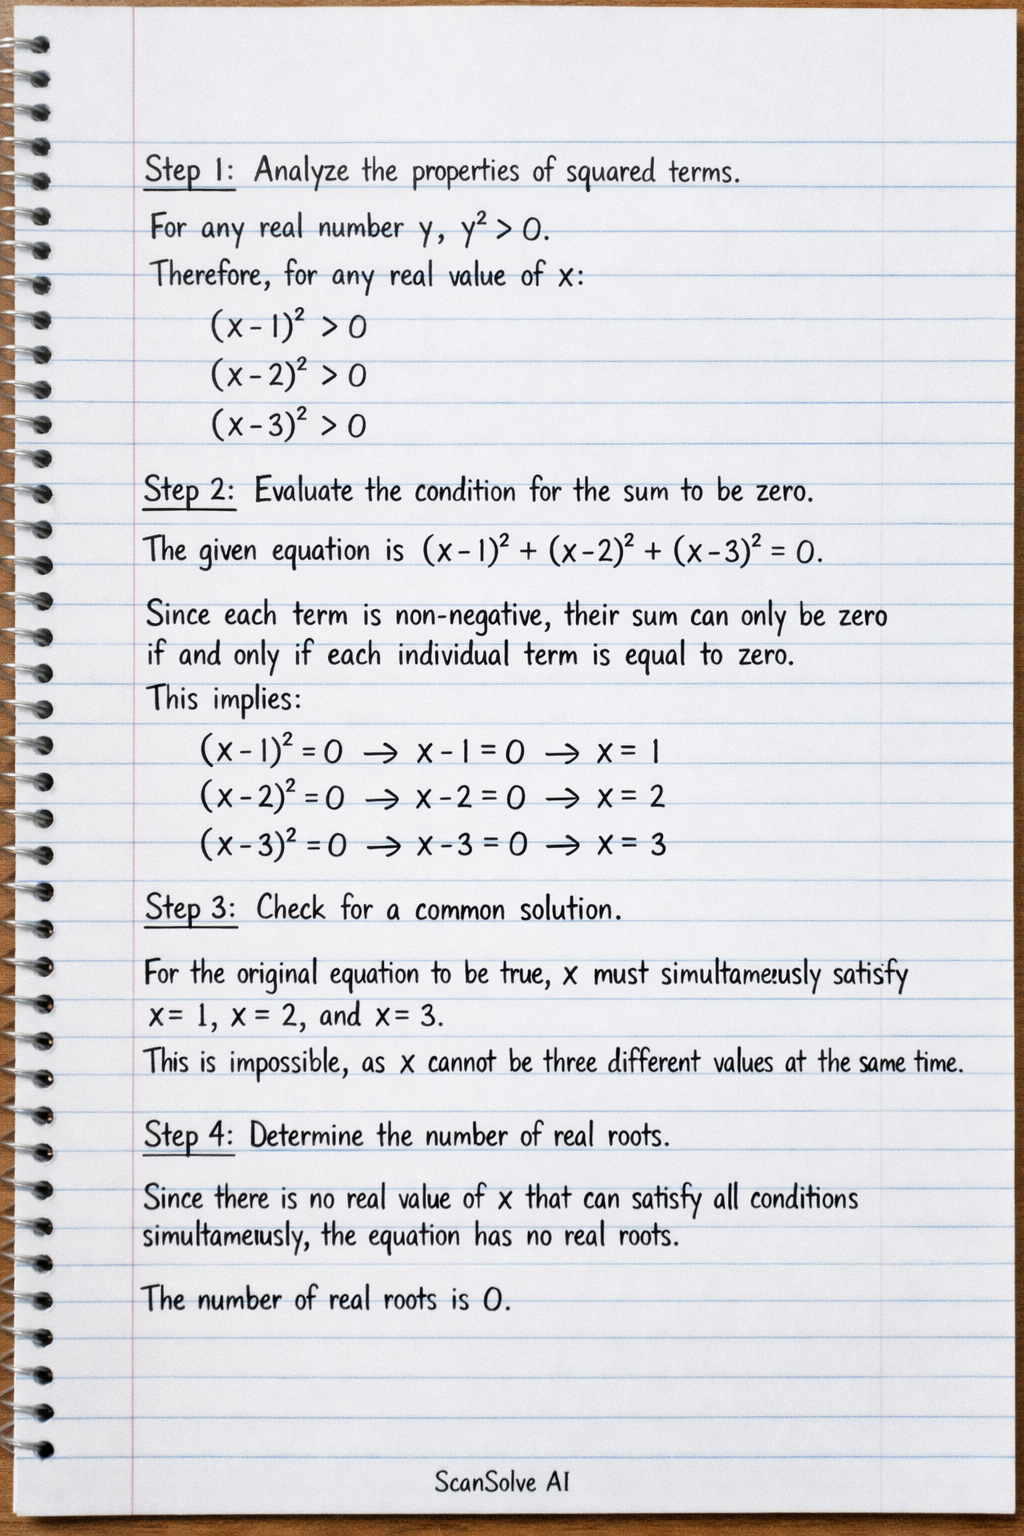 Step 1: Analyze the properties of squared terms.
For any real number y, y² > 0.
Therefore, for any real value of x:
(x - 1)² > 0
(x - 2)² > 0
(x - 3)² > 0
Step 2: Evaluate the condition for the sum to be zero.
The given equation is (x - 1)² + (x - 2)² + (x - 3)² = 0.
Since each term is non-negative, their sum can only be zero
if and only if each individual term is equal to zero.
This implies:
(x - 1)² = 0 → x - 1 = 0 → x = 1
(x - 2)² = 0 → x - 2 = 0 → x = 2
(x - 3)² = 0 → x - 3 = 0 → x = 3
Step 3: Check for a common solution.
For the original equation to be true, x must satisfy
x = 1, x = 2, and x = 3.
This is impossible, as x cannot be three different values at the same time.
Step 4: Determine the number of real roots.
Since there is no real value of x that can satisfy all conditions
the equation has no real roots.
The number of real roots is 0.
ScanSolve AI